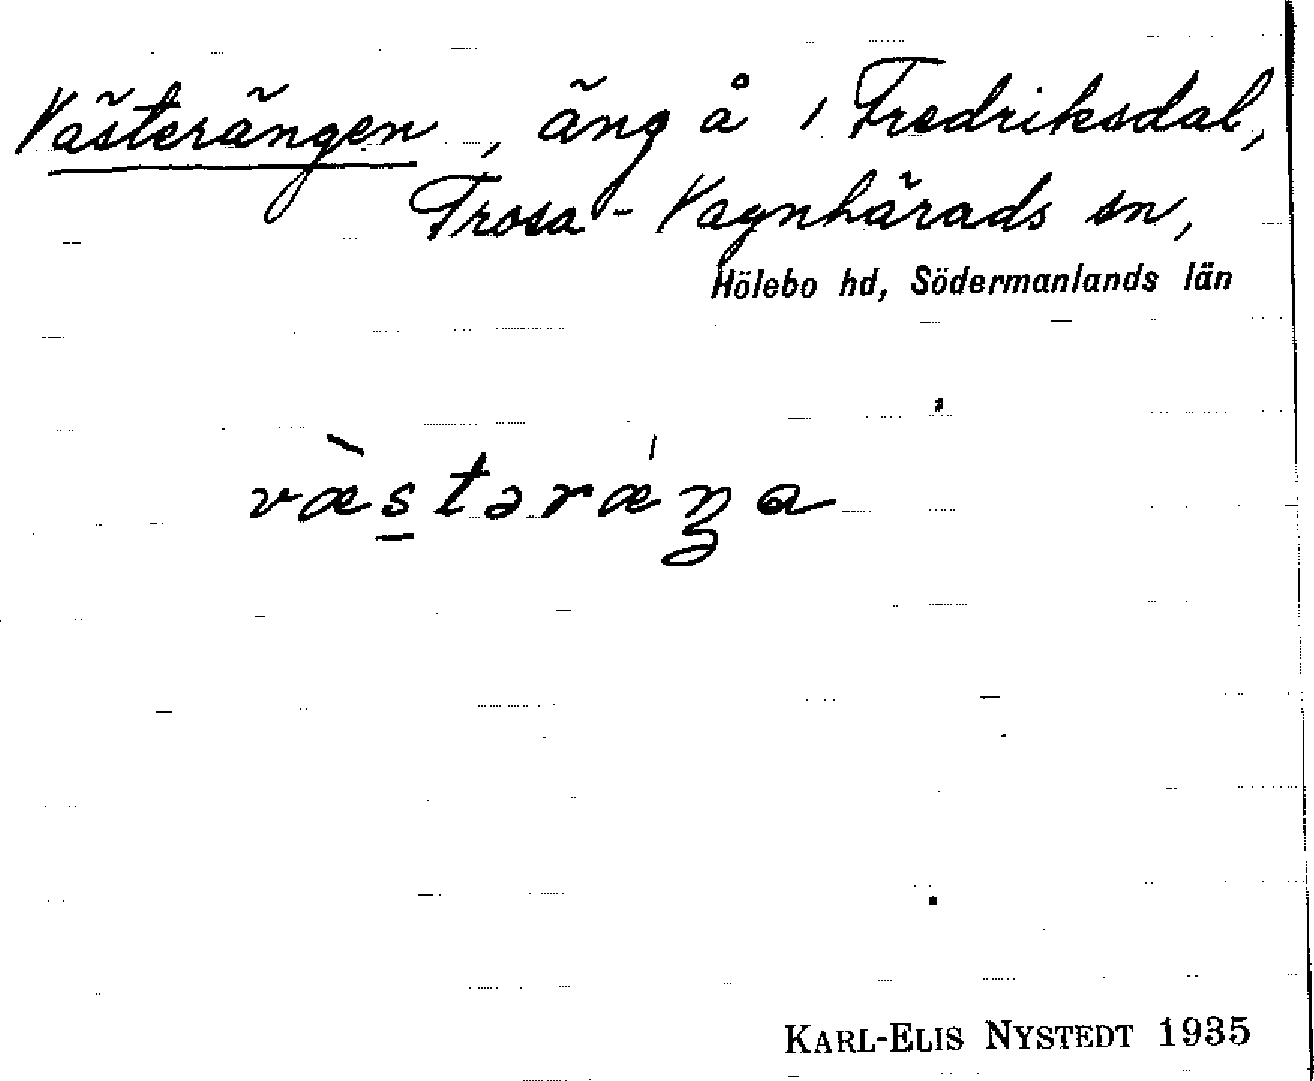 Västerängen, äng å 1 Fredriksdal,
Trosa-Vagnhärads sn,
Hölebo hd, Södermanlands län
væ̀stərǽŋa
KARL-ELIS NYSTEDT 1935